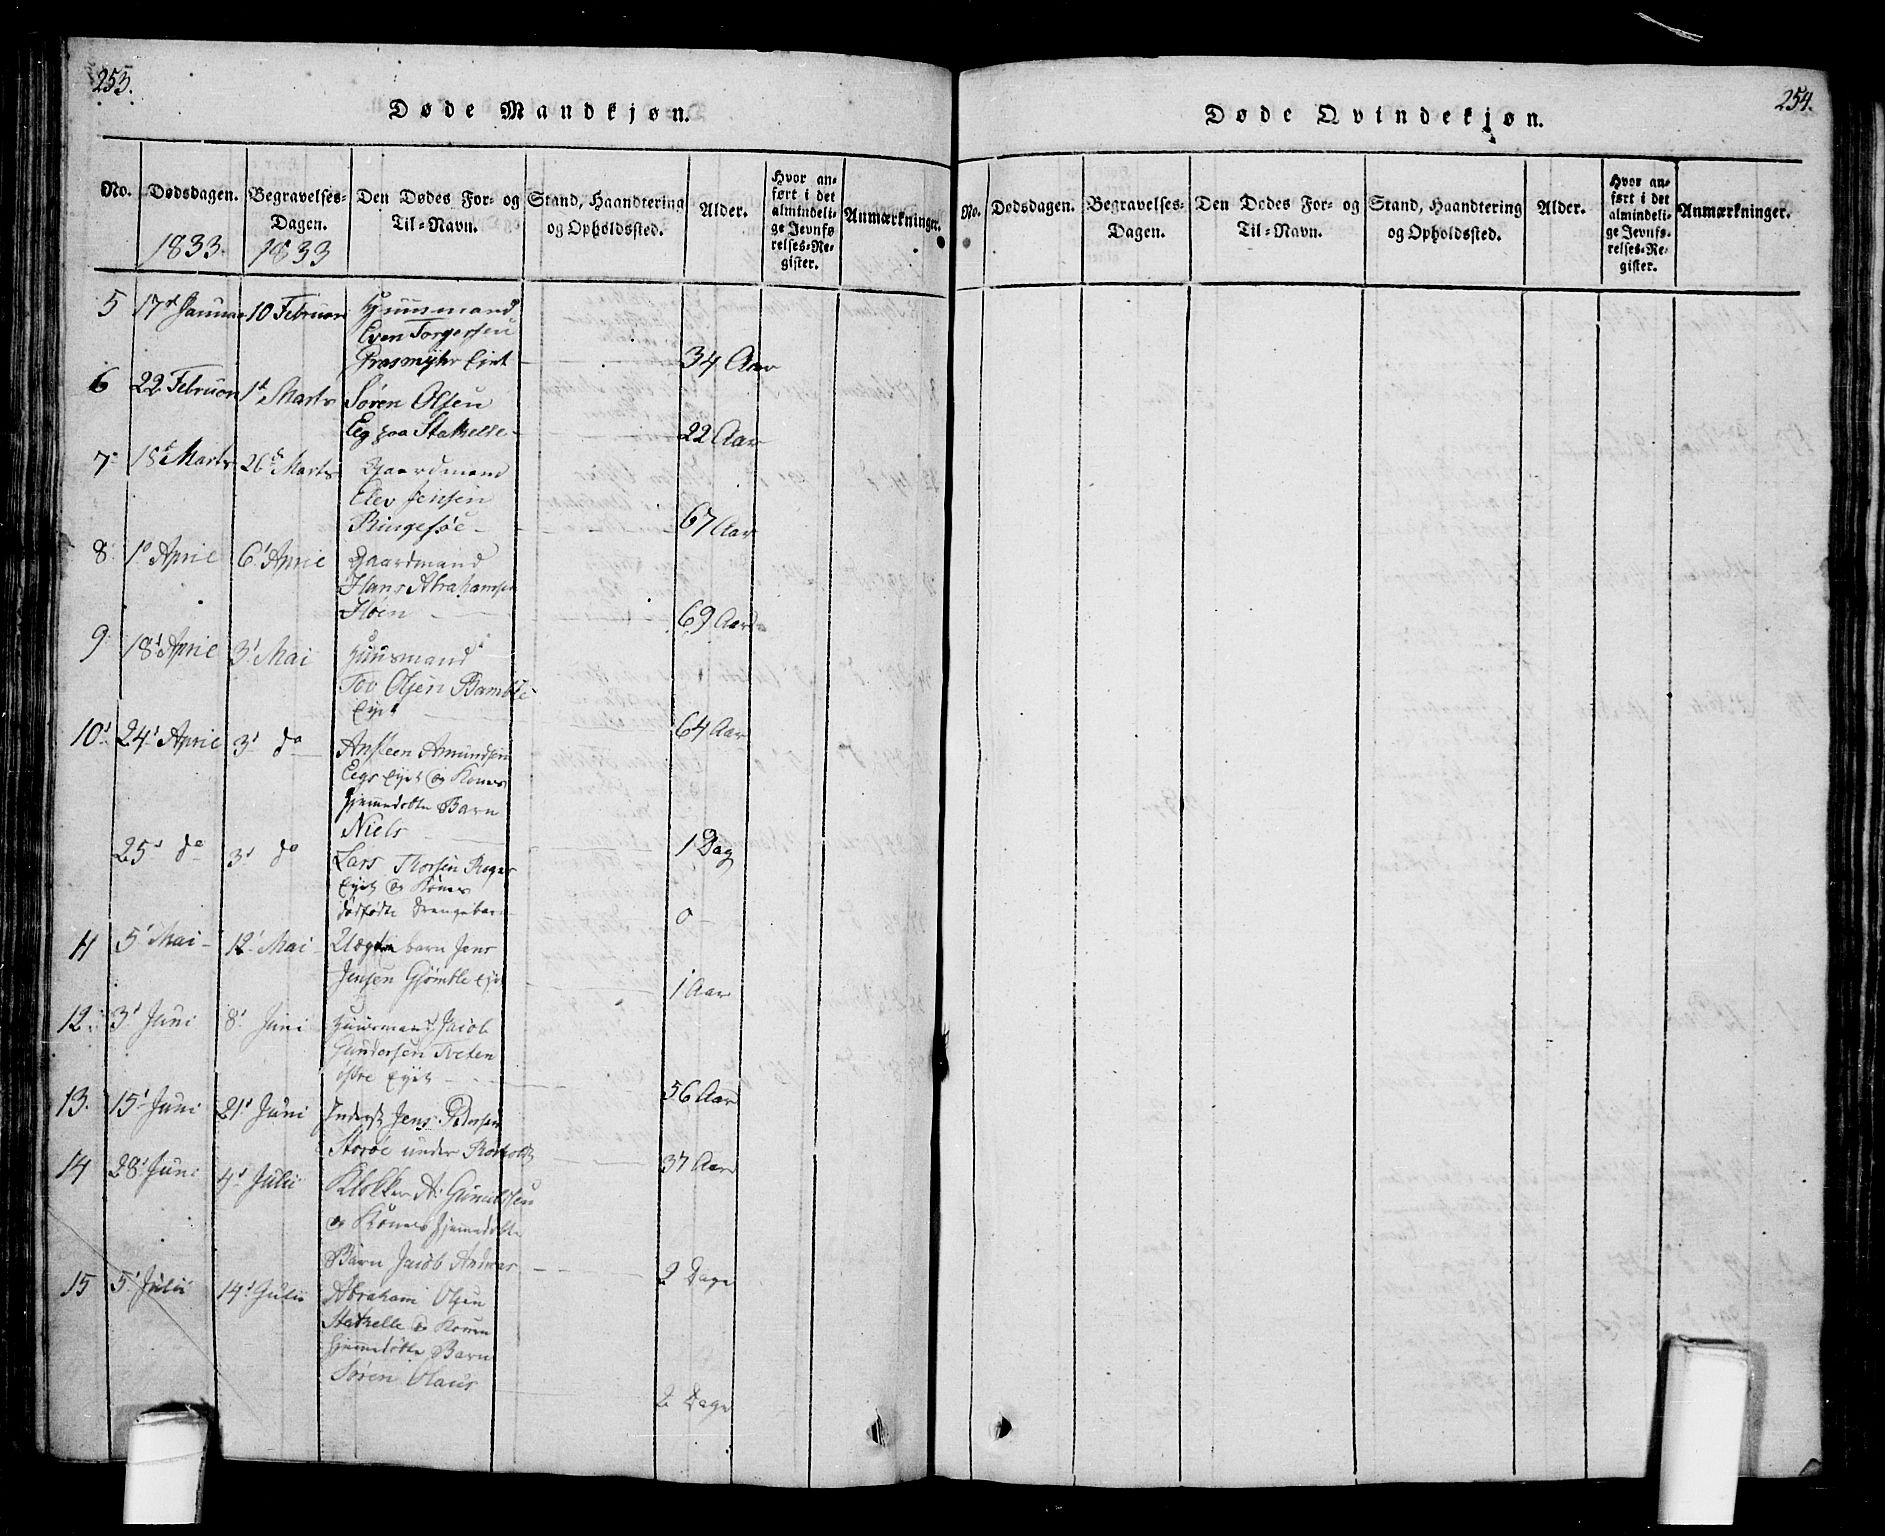 253.
Døde Mandkjøn.
No.
Dødsdagen.
1833.
Begravelses-
Dagen.
1833
Den Dødes For- og
Til-Navn.
Stand, Haandtering
og Opholdssted.
Alder.
Hvor an-
ført i det
almindeli-
ge Jevnfø-
relses-Re-
gister.
Anmærkninger.
5 17d Januar 10 Februar Huusmand
Even Torgersen
Grasmyhr Eiet 34 Aar
6 22 Februar 1d Marts Søren Olsen
Eeg paa Stathelle 22 Aar
7 18d Marts 26d Marts Gaardmand
Elev Jensen
Ringesøe 67 Aar
8 1d April 6d April Gaardmand
Hans Abrahamsen
Hoen 69 Aar
9 18d April 3d Mai Huusmand
Tov Olsen Bamble
Eyet 64 Aar
10 24d April 3d do Ansteen Amundsen
Eegs Eyet og Kones
hjemmedøbte Barn
Niels 1 Dag
25d do 3d do Lars Thorsen
Eyet og Kones
dødfødte Drengebarn 0
11 5d Mai 12d Mai Uægte barn Jens
Jensen Gjømble Eyet 1 Aar
12 3d Juni 8d Juni Huusmand Jacob
Gundersen Tveten
østre Eyet 56 Aar
13. 15d Juni 21d Juni Inderst Jens Pedersen
Storøe under 37 Aar
14 28d Juni 4d Julii Klokker A. Gunildsen
og Kones hjemmedøbte
Barn Jacob Andreas 2 Dage
15 5d Julii 14d Julii Abraham Olsen
Stathelle og Kones
hjemmedøbte Barn
Søren Olaus 2 Dage
254.
Døde Qvindekjøn.
No.
Dødsdagen.
Begravelses-
Dagen.
Den Dødes For- og
Til-Navn.
Stand, Haandtering
og Opholdssted.
Alder.
Hvor an-
ført i det
almindeli-
ge Jevnfø-
relses-Re-
gister.
Anmærkninger.